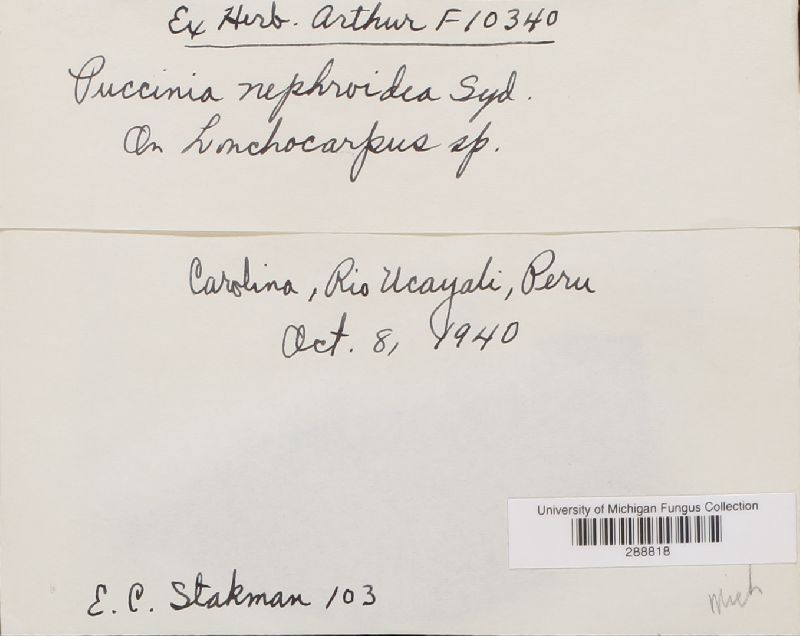 Ex Herb. Arthur F10340
Puccinia nephroidea Syd.
On Lonchocarpus sp.
Carolina, Rio Ucayali, Peru
Oct. 8, 1940
University of Michigan Fungus Collection
288818
E. C. Stakman 103
Mich